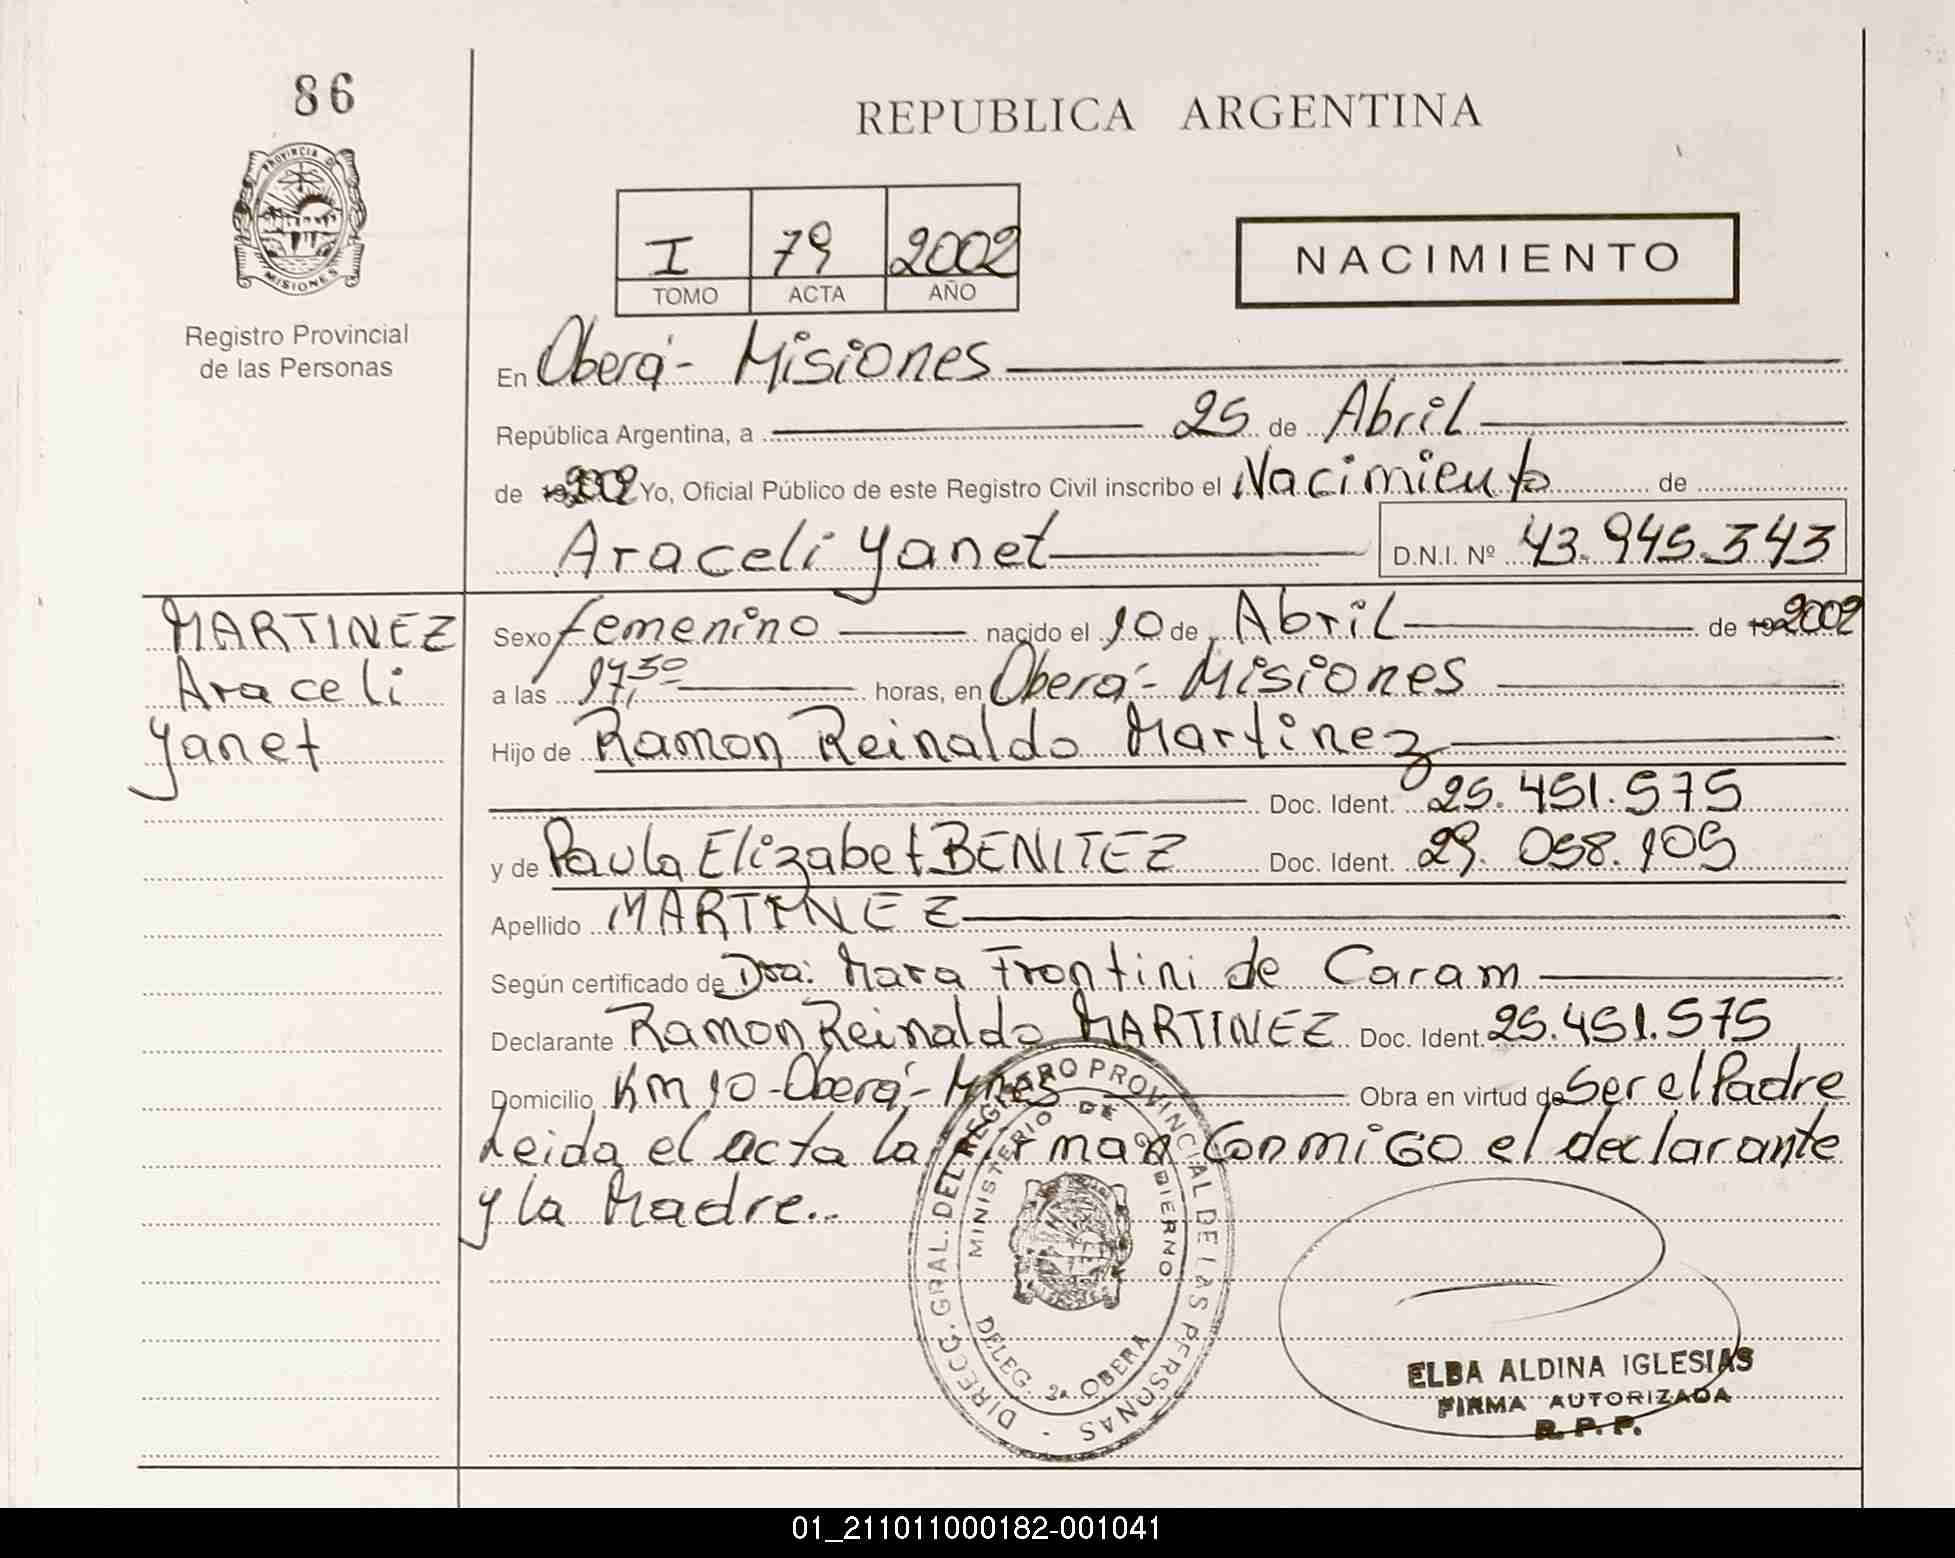 86
REPUBLICA ARGENTINA
PROVINCIA D
MISIONES
Registro Provincial
de las Personas
I 79 2002
TOMO ACTA AÑO
NACIMIENTO
En Oberá- Misiones
República Argentina, a 25 de Abril
de 19 2002 Yo, Oficial Público de este Registro Civil inscribo el Nacimiento de
Araceli Yanet D.N.I. Nº 43.945.343
MARTINEZ
Araceli
Yanet
Sexo femenino nacido el 10 de Abril de 19 2002
a las 17,30 horas, en Oberá- Misiones
Hijo de Ramon Reinaldo Martinez
Doc. Ident. 25.451.575
y de Paula Elizabet BENITEZ Doc. Ident. 29.058.105
Apellido MARTINEZ
Según certificado de Dra: Mara Frontini de Caram
Declarante Ramon Reinaldo MARTINEZ Doc. Ident. 25.451.575
Domicilio KM 10-Oberá- Mnes Obra en virtud de Ser el Padre
Leida el acta la firman Conmigo el declarante
y la Madre..
DIRECC. GRAL. DEL REGISTRO PROVINCIAL DE LAS PERSONAS
MINISTERIO DE GOBIERNO
DELEG. 2ª OBERA
ELBA ALDINA IGLESIAS
FIRMA AUTORIZADA
R. P. P.
01_211011000182-001041